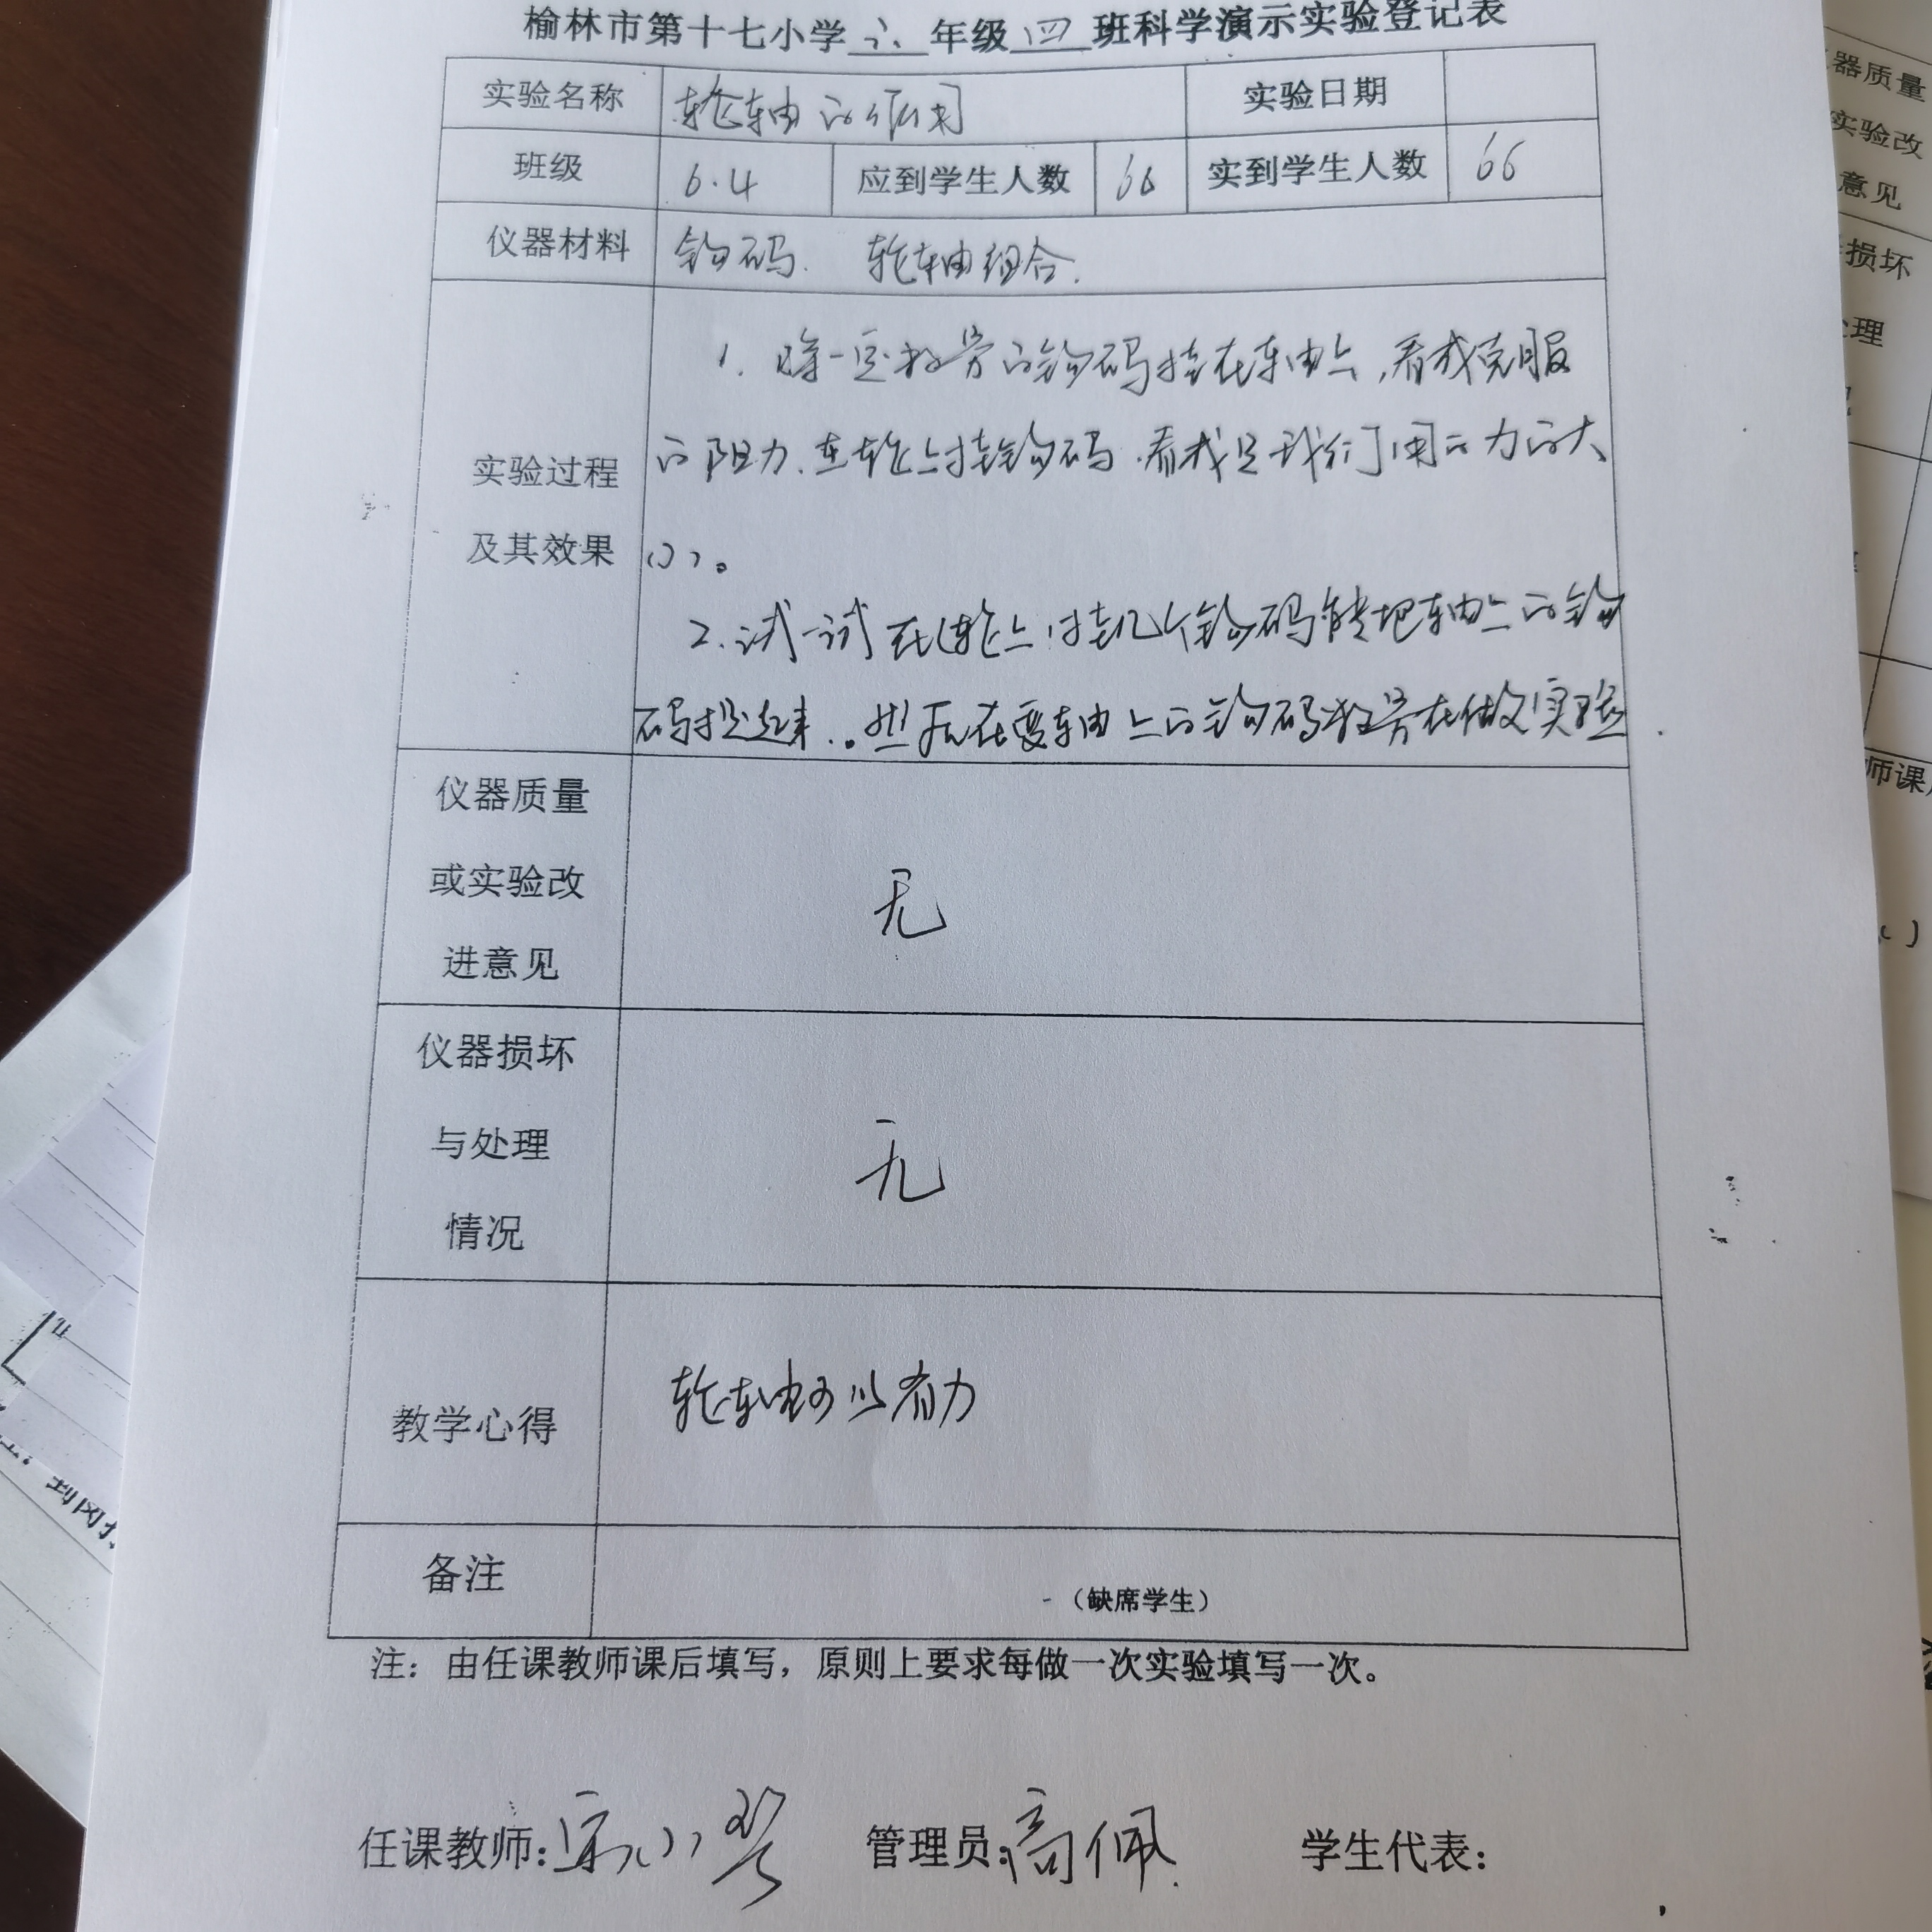 榆林市第十七小学 六 年级 四 班科学演示实验登记表
实验名称 轮轴的作用 实验日期
班级 6.4 应到学生人数 66 实到学生人数 66
仪器材料 钩码. 轮轴组合.
实验过程
及其效果
1. 将一定数量的钩码挂在轴上,看成克服
的阻力.在轮上挂钩码.看成是我们用的力的大
小。
2.试一试在轮上挂几个钩码能把轴上的钩
码提起来.。然后在变轴上的钩码数量在做实验.
仪器质量
或实验改
进意见
无
仪器损坏
与处理
情况
无
教学心得 轮轴可以省力
备注
（缺席学生）
注：由任课教师课后填写，原则上要求每做一次实验填写一次。
任课教师: 管理员:高佩. 学生代表:
器质量
实验改
意见
损坏
处理
师课